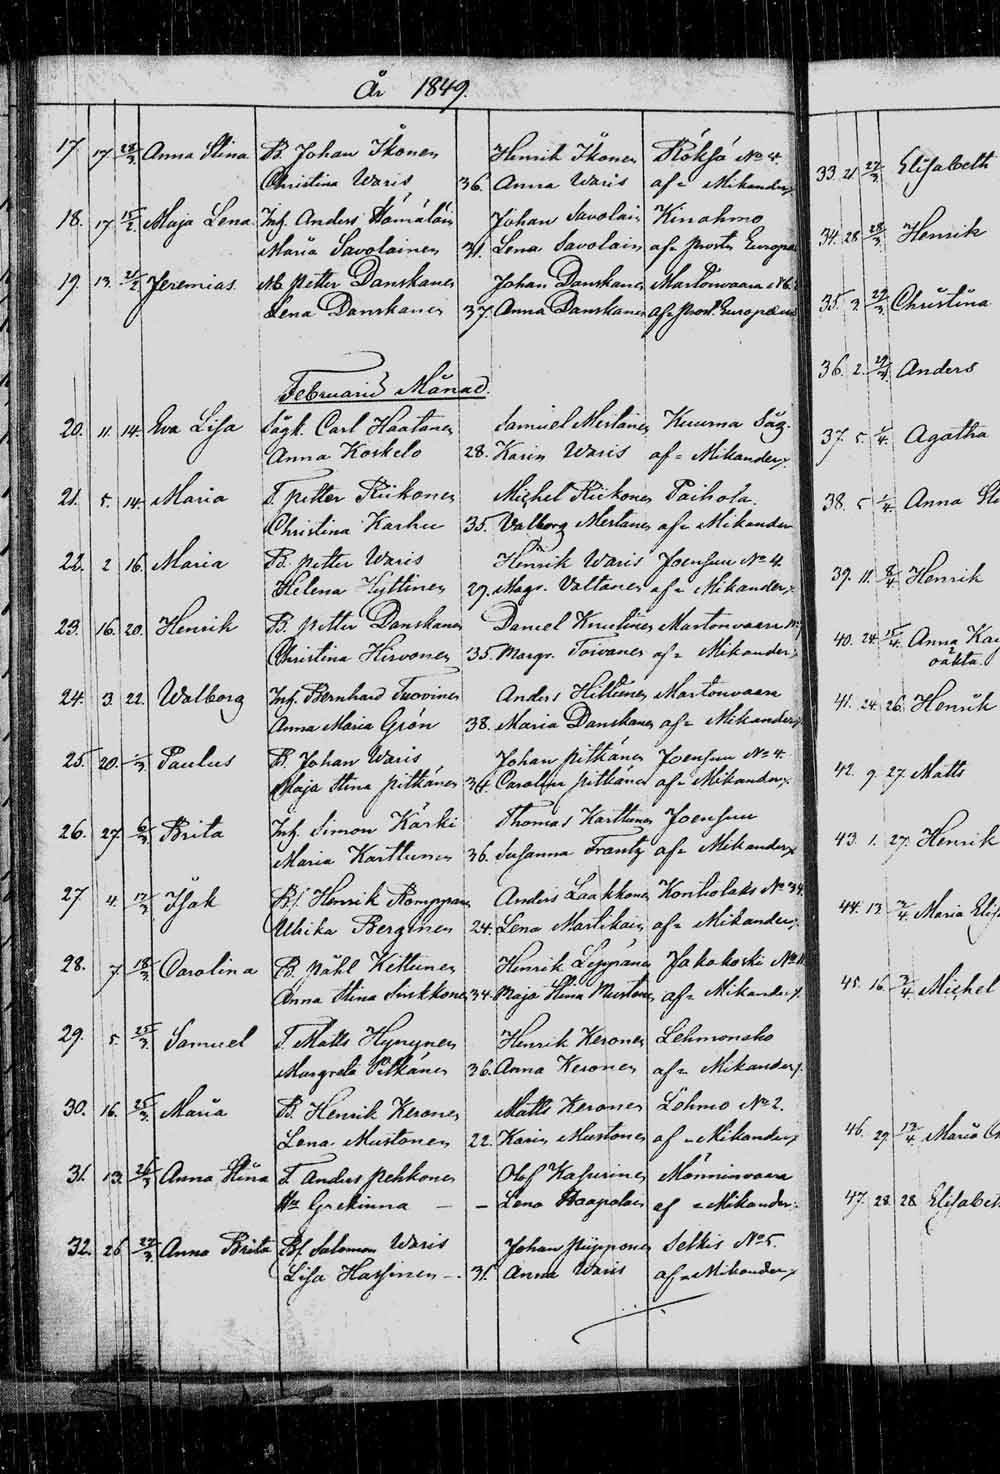 År 1849.
17 17 28/3 Anna Stina B. Johan Ikonen Henrik Ikonen Röksö No 4.
Christina Waris 36. Anna Waris af= Mikander
18. 17 18/2 Maja Lena Inh. Anders Hämäläin Johan Savolain Kinahmo
Maria Savolainen 31. Lena Savolain af= prost. Europæus
19. 13. 21/2 Jeremias. Petter Danskanen Johan Danskanen Martonvaara
Lena Danskanen 37. Anna Danskanen af= prost. Europæus
Februarii Månad.
20. 11. 14. Eva Lisa Sågk. Carl Haatanen Samuel Mertanen Kuurna Såg.
Anna Koskelo 28. Karin Waris af= Mikander
21. 5. 14. Maria T. Petter Riikonen Michel Riikonen Paihola.
Christina Karhu 35. Valborg Mertanen af= Mikander
22. 2 16. Maria B. Petter Waris Henrik Waris Joensuu No 4.
Helena Hyttinen 29. Magr. Valtanen af= Mikander
23. 16. 20. Henrik B. Petter Danskanen Daniel Knutinen Martonvaara
Christina Hirvonen 35. Margr. Toivanen af= Mikander
24. 3. 22. Walborg Inh. Bernhard Tuovinen Anders Hiltunen Martonvaara
Anna Maria Grön 38. Maria Danskanen af= Mikander
25. 20. 1/3 Paulus B. Johan Waris Johan Pitkänen Joensuu No 4.
Maja Stina Pitkänen 34. Carolina Pitkänen af= Mikander
26. 27. 6/3 Brita Inh. Simon Kärki Thomas Karttunen Joensuu
Maria Karttunen 36. Susanna Frantz af= Mikander
27 4. 12/3 Isak Bs. Henrik Romppanen Anders Laakkonen Kontiolaks No 34.
Ulrika Berginen 24. Lena Martikain af= Mikander
28. 7 18/3 Carolina B. Påhl Kettunen Henrik Leppänen Jakokoski No 11
Anna Stina Sirkkonen 34. Maja Stina Mustonen af= Mikander
29. 5. 25/3 Samuel T. Matts Hynynen Henrik Keronen Lehmonaho
Margreta Pitkänen 36. Anna Keronen af= Mikander
30. 16. 25/3 Maria B. Henrik Keronen Matts Keronen Lehmo No 2.
Lena Mustonen 22. Karin Mustonen af= Mikander
31. 13. 26/3 Anna Stina T. Anders Pehkonen Olof Kasurinen Mönninvaara
Grekinna — — Lena Haapalain af= Mikander
32. 26 27/3 Anna Brita Bs. Salomon Waris Johan Piipponen Selkis No 5.
Lisa Hassinen —. 31. Anna Waris af= Mikander
33. 21 27/3 Elisabeth
34. 28 28/3 Henrik
35. 3. 29/3 Christina
36. 2. 29/3 Anders
37. 5. 1/4. Agatha
38. 5 1/4. Anna
39. 11. 8/4 Henrik
40. 24. 15/4. Anna
oäkta.
41. 24 26. Henrik
42. 9. 27. Matts
43. 1. 27. Henrik
44. 13. Maria
45. 16. Michel
46. 29. Maria
47. 28. 28. Elisabeth